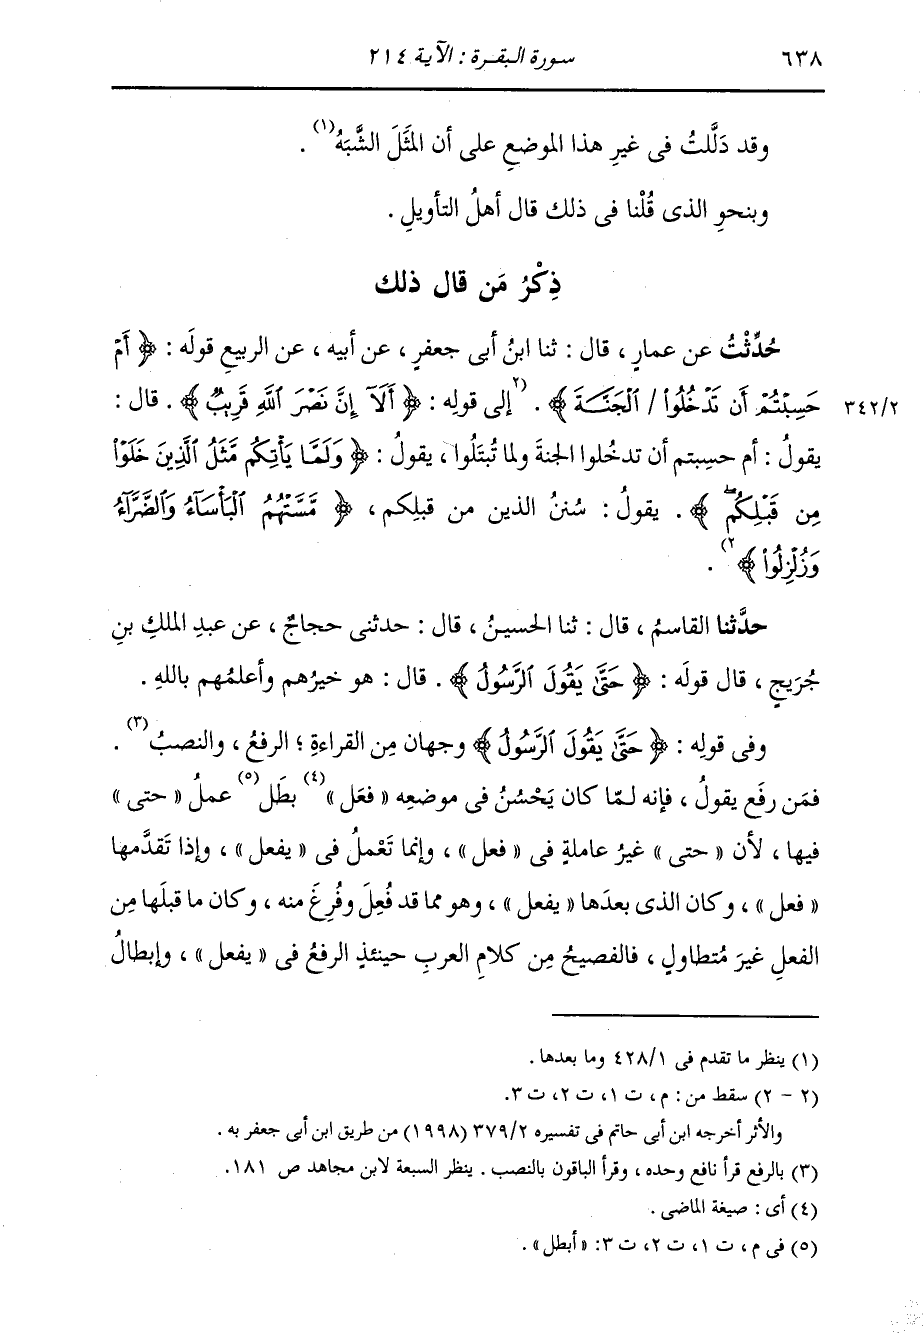 ٦٣٨ سورة البقرة : الآية ٢١٤
وقد دَلَّلتُ فى غيرِ هذا الموضعِ على أن المَثَلَ الشَّبَهُ(١) .
وبنحوِ الذى قُلْنا فى ذلك قال أهلُ التأويلِ .
ذِكْرُ مَن قال ذلك
حُدِّثْتُ عن عمارٍ ، قال : ثنا ابنُ أبى جعفرٍ ، عن أبيه ، عن الربيعِ قولَه : ﴿ أَمْ
حَسِبْتُمْ أَن تَدْخُلُوا۟ / ٱلْجَنَّةَ ﴾ . (٢ إلى قولِه : ﴿ أَلَآ إِنَّ نَصْرَ ٱللَّهِ قَرِيبٌ ﴾ . قال : ٣٤٢/٢
يقولُ : أم حسِبتم أن تدخُلوا الجنةَ ولما تُبتَلُوا ، يقولُ : ﴿ وَلَمَّا يَأْتِكُم مَّثَلُ ٱلَّذِينَ خَلَوْا۟
مِن قَبْلِكُمۖ ﴾ . يقولُ : سُننُ الذين من قبلِكم ، ﴿ مَّسَّتْهُمُ ٱلْبَأْسَآءُ وَٱلضَّرَّآءُ
وَزُلْزِلُوا۟ ﴾ ٢) .
حدَّثنا القاسمُ ، قال : ثنا الحسينُ ، قال : حدثنى حجاجٌ ، عن عبدِ الملكِ بنِ
جُرَيجٍ ، قال قولَه : ﴿ حَتَّىٰ يَقُولَ ٱلرَّسُولُ ﴾ . قال : هو خيرُهم وأعلمُهم باللهِ .
وفى قولِه : ﴿ حَتَّىٰ يَقُولَ ٱلرَّسُولُ ﴾ وجهان مِن القراءةِ ؛ الرفعُ ، والنصبُ(٣) .
فمَن رفَع يقولُ ، فإنه لمّا كان يَحْسُنُ فى موضعِه « فعَل »(٤) بطَل(٥) عملُ « حتى »
فيها ، لأن « حتى » غيرُ عاملةٍ فى « فعل » ، وإنما تَعْملُ فى « يفعل » ، وإذا تقدَّمها
« فعل » ، وكان الذى بعدَها « يفعل » ، وهو مما قد فُعِلَ وفُرِغَ منه ، وكان ما قبلَها مِن
الفعلِ غيرَ مُتطاولٍ ، فالفصيحُ مِن كلامِ العربِ حينئذٍ الرفعُ فى « يفعل » ، وإبطالُ
(١) ينظر ما تقدم فى ٤٢٨/١ وما بعدها .
(٢ - ٢) سقط من : م ، ت ١ ، ت ٢ ، ت ٣.
والأثر أخرجه ابن أبى حاتم فى تفسيره ٣٧٩/٢ (١٩٩٨) من طريق ابن أبى جعفر به .
(٣) بالرفع قرأ نافع وحده ، وقرأ الباقون بالنصب . ينظر السبعة لابن مجاهد ص ١٨١.
(٤) أى : صيغة الماضى .
(٥) فى م ، ت ١ ، ت ٢ ، ت ٣: « أبطل » .